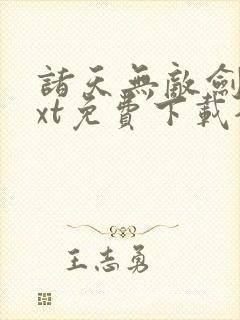 諸天無敵劍
xt免費下載
王志勇